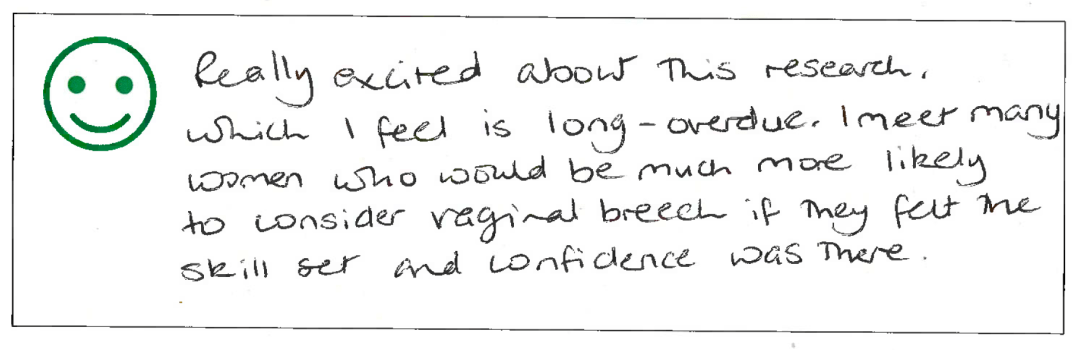 Really excited about this research,
which I feel is long-overdue. I meet many
women who would be much more likely
to consider vaginal breech if they felt the
skill set and confidence was there.